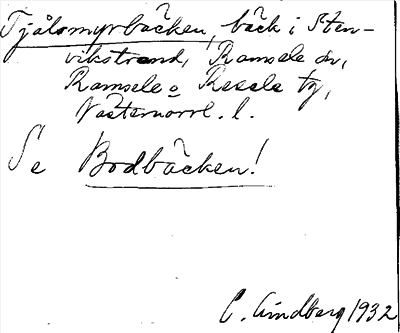 Tjålsmyrbäcken, bäck i Sten-
vikstrand, Ramsele sn,
Ramsele o Resele tg,
Västernorrl. l.
Se Bodbäcken!
C. Lindberg 1932